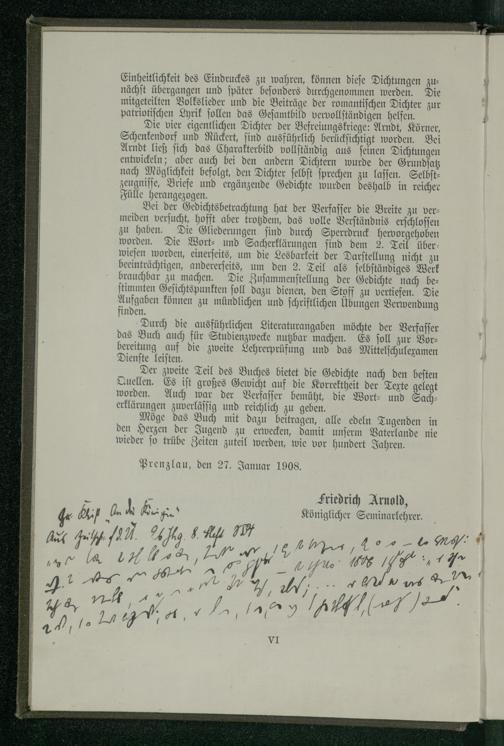 Einheitlichkeit des Eindruckes zu wahren, können diese Dichtungen zu-
nächst übergangen und später besonders durchgenommen werden. Die
mitgeteilten Volkslieder und die Beiträge der romantischen Dichter zur
patriotischen Lyrik sollen das Gesamtbild vervollständigen helfen.
Die vier eigentlichen Dichter der Befreiungskriege: Arndt, Körner,
Schenkendorf und Rückert, sind ausführlich berücksichtigt worden. Bei
Arndt ließ sich das Charakterbild vollständig aus seinen Dichtungen
entwickeln; aber auch bei den andern Dichtern wurde der Grundsatz
nach Möglichkeit befolgt, den Dichter selbst sprechen zu lassen. Selbst-
zeugnisse, Briefe und ergänzende Gedichte wurden deshalb in reicher
Fülle herangezogen.
Bei der Gedichtsbetrachtung hat der Verfasser die Breite zu ver-
meiden versucht, hofft aber trotzdem, das volle Verständnis erschlossen
zu haben. Die Gliederungen sind durch Sperrdruck hervorgehoben
worden. Die Wort- und Sacherklärungen sind dem 2. Teil über-
wiesen worden, einerseits, um die Lesbarkeit der Darstellung nicht zu
beeinträchtigen, andererseits, um den 2. Teil als selbständiges Werk
brauchbar zu machen. Die Zusammenstellung der Gedichte nach be-
stimmten Gesichtspunkten soll dazu dienen, den Stoff zu vertiefen. Die
Aufgaben können zu mündlichen und schriftlichen Übungen Verwendung
finden.
Durch die ausführlichen Literaturangaben möchte der Verfasser
das Buch auch für Studienzwecke nutzbar machen. Es soll zur Vor-
bereitung auf die zweite Lehrerprüfung und das Mittelschulexamen
Dienste leisten.
Der zweite Teil des Buches bietet die Gedichte nach den besten
Quellen. Es ist großes Gewicht auf die Korrektheit der Texte gelegt
worden. Auch war der Verfasser bemüht, die Wort- und Sach-
erklärungen zuverlässig und reichlich zu geben.
Möge das Buch mit dazu beitragen, alle edeln Tugenden in
den Herzen der Jugend zu erwecken, damit unserm Vaterlande nie
wieder so trübe Zeiten zuteil werden, wie vor hundert Jahren.
Prenzlau, den 27. Januar 1908.
Friedrich Arnold,
Königlicher Seminarlehrer.
"An die Königin"
8. Heft
VI